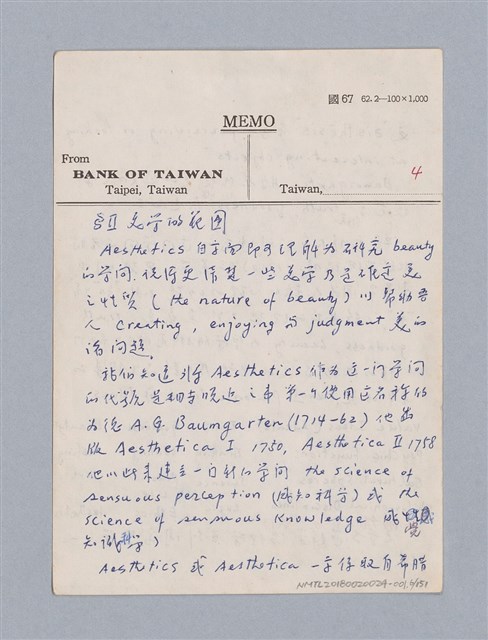 國 67 62.2—100×1,000
MEMO
From
BANK OF TAIWAN
Taipei, Taiwan
Taiwan,
4
§II 美学的範囲
Aesthetics 自字面即可理解为研究 beauty
的学问. 説得更清楚一些美学乃是確定美
之性質 (the nature of beauty) 以幫助吾
人 creating, enjoying 与 judgment 美的
諸问題.
我们知道將 Aesthetics 作为這一门学问
的代號是相当晚近之事 第一个使用這名称的
为德 A.G. Baumgarten (1714-62) 他出
版 Aesthetica I 1750, Aesthetica II 1758
他以此來建立一门新的学问 the science of
sensuous perception (感知科学) 或 the
science of sensuous knowledge 感覚
知識科学)
Aesthetics 或 Aesthetica 一字係取自希腊
NMTL20180020024-001,5/151